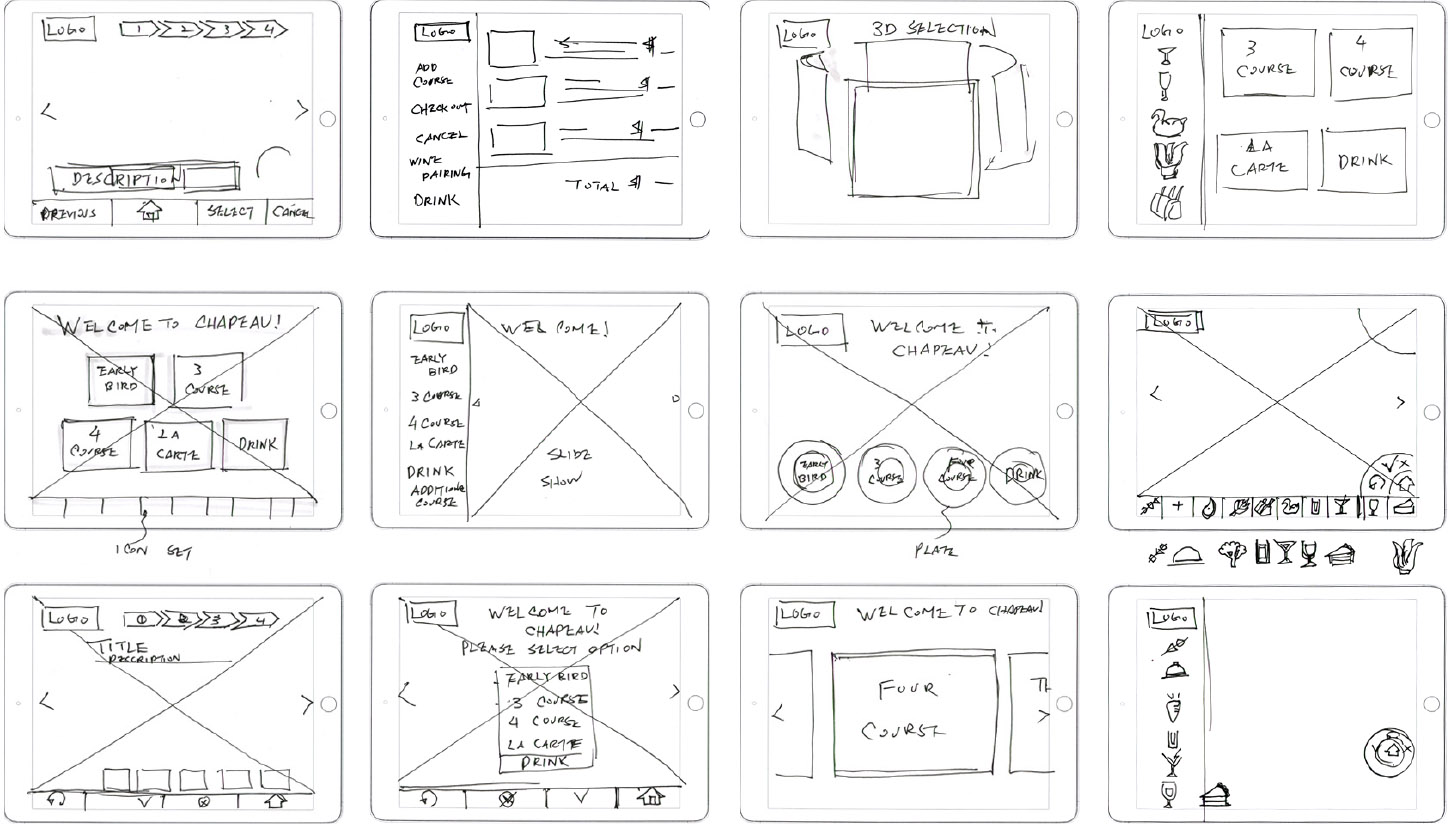 LOGO 1 2 3 4
DESCRIPTION
PREVIOUS SELECT CANCEL
LOGO
ADD
COURSE
CHECKOUT
CANCEL
WINE
PAIRING
DRINK
$
$
$
TOTAL $
LOGO 3D SELECTION
LOGO
3
COURSE
4
COURSE
LA
CARTE
DRINK
WELCOME TO CHAPEAU!
EARLY
BIRD
3
COURSE
4
COURSE
LA
CARTE
DRINK
ICON SET
LOGO
EARLY
BIRD
3 COURSE
4 COURSE
LA CARTE
DRINK
ADDITIONAL
COURSE
WELCOME!
SLIDE
SHOW
LOGO
WELCOME TO
CHAPEAU!
EARLY
BIRD
3
COURSE
FOUR
COURSE
DRINK
PLATE
LOGO
LOGO 1 2 3 4
TITLE
DESCRIPTION
LOGO
WELCOME TO
CHAPEAU!
PLEASE SELECT OPTION
EARLY BIRD
3 COURSE
4 COURSE
LA CARTE
DRINK
LOGO WELCOME TO CHAPEAU!
FOUR
COURSE
TH
LOGO